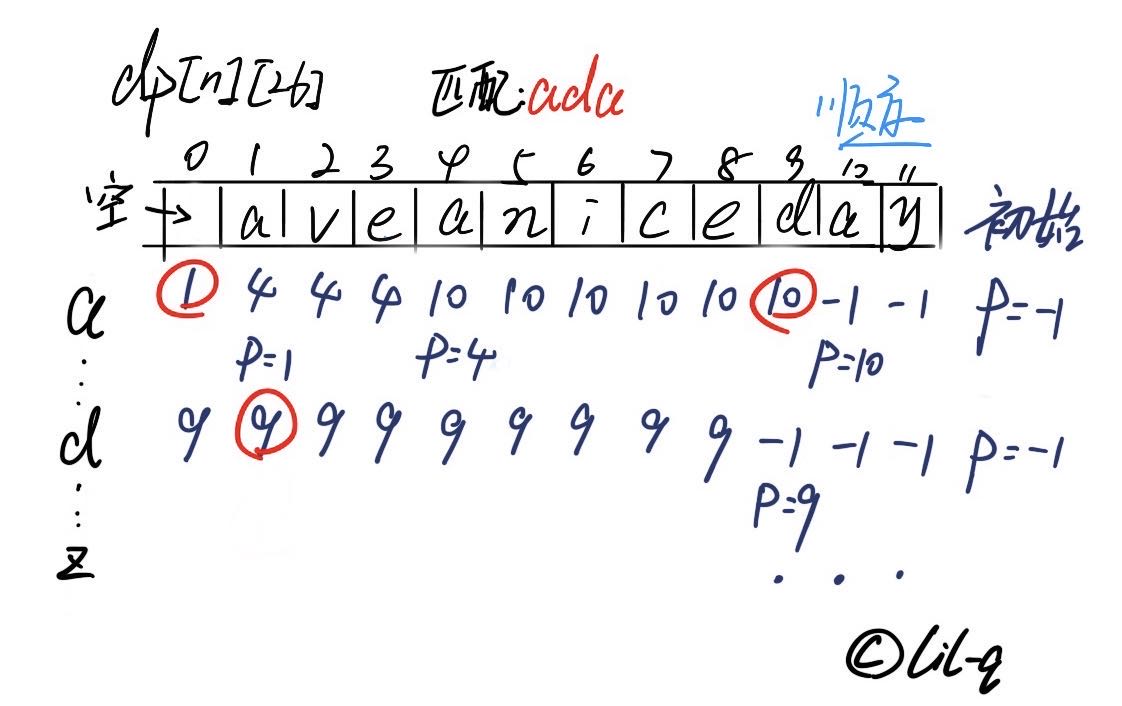 dp[n][26] 匹配:ada 顺序
0 1 2 3 4 5 6 7 8 9 10 11
空→ a v e a n i c e d a y 初始
a 1 4 4 4 10 10 10 10 10 10 -1 -1 P=-1
P=1 P=4 P=10
d 9 9 9 9 9 9 9 9 9 -1 -1 -1 P=-1
P=9
z
©lil-q